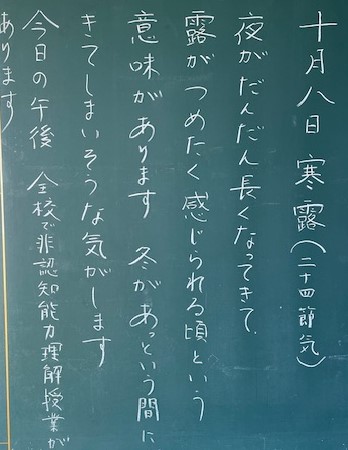 十月八日 寒露(二十四節気)
夜がだんだん長くなってきて、
露がつめたく感じられる頃という
意味があります 冬があっという間に
きてしまいそうな気がします
今日の午後 全校で非認知能力理解授業が
あります